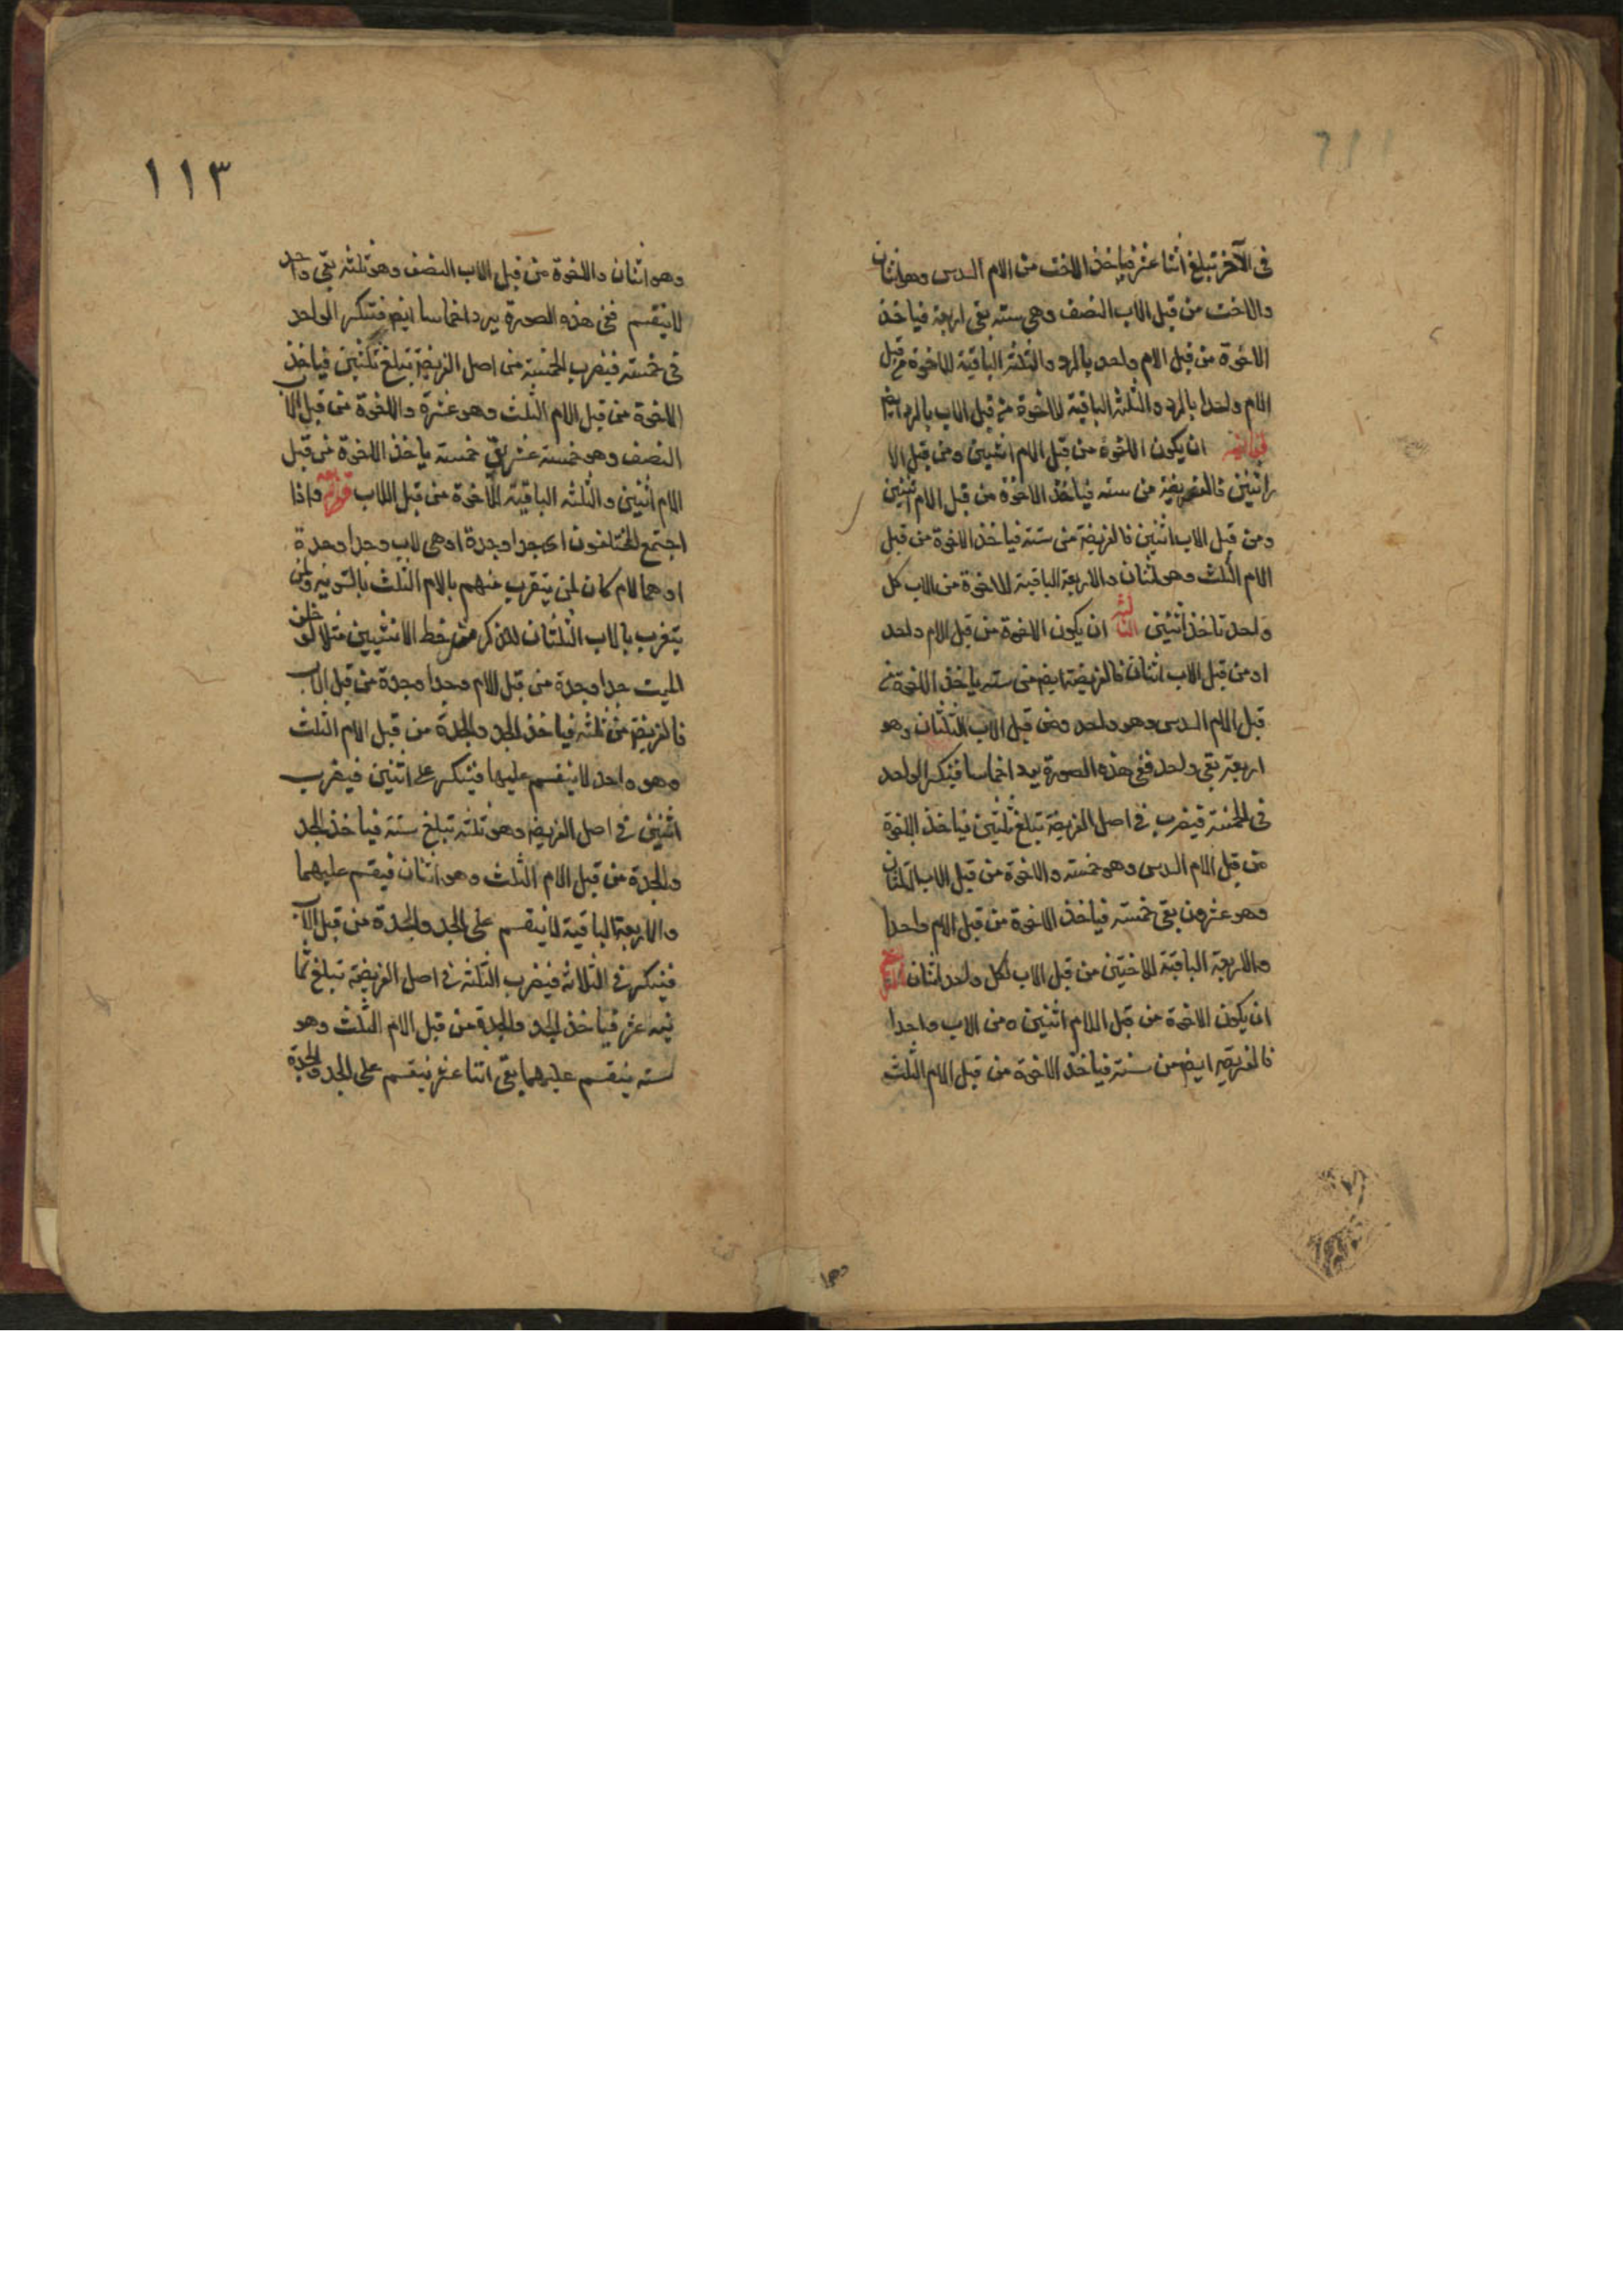 فى الآخر تبلغ اثنا عشر فياخذ الاخت من الام السدس وهو اثنان
والاخت من قبل الاب النصف وهى سته بقى اربعة فياخذ
الاخوة من قبل الام واحد بالرد والثلثة الباقية للاخوة من قبل
الام واحدا بالرد والثلثه الباقية للاخوة من قبل الاب بالرد ايضا
ان يكون الاخوة من قبل الام اثنين ومن قبل الا
اثنين فالفريضة من سته فياخذ الاخوة من قبل الام اثنين
ومن قبل الاب اثنين فالفريضة من ستة فياخذ الاخوة من قبل
الام الثلث وهو اثنان والاربعة الباقية للاخوة من الاب كل
واحد تاخذ اثنين الثالثه ان يكون الاخوة من قبل الام واحد
او من قبل الاب اثنان فالفريضة ايض من سته ياخذ الاخوة من
قبل الام السدس وهو واحد ومن قبل الاب الثلثان وهو
اربعة بقى واحد ففى هذه الصورة يرد اخماسا فينكسر الواحد
فى الخمسة فيضرب فى اصل الفريضة تبلغ ثلثين فياخذ الاخوة
من قبل الام السدس وهو خمسه والاخوة من قبل الاب الثلثان
وهو عشرون بقى خمسه فياخذ الاخوة من قبل الام واحدا
والاربعة الباقية للاختين من قبل الاب لكل واحد اثنان
ان يكون الاخوة من قبل الام اثنين ومن الاب واحدا
فالفريضة ايض من ستة فياخذ الاخوة من قبل الام الثلث
١١٣
وهو اثنان والاخوة من قبل الاب النصف وهو ثلثه بقى واحد
لا ينقسم ففى هذه الصورة يرد اخماسا ايض فتنكسر الواحد
فى خمسه فيضرب الخمسة من اصل الفريضة تبلغ ثلثين فياخذ
الاخوة من قبل الام الثلث وهو عشرة والاخوة من قبل الاب
النصف وهو خمسة عشر بقى خمسة ياخذ الاخوة من قبل
الام اثنين والثلثه الباقية للاخوة من قبل الاب واذا
اجتمع المختلفون اى جد او جدة او هى لاب وجد او جدة
او هما لام كان لمن يتقرب منهم بالام الثلث بالسويه ولمن
يتقرب بالاب الثلثان للذكر مثل حظ الانثيين مثلا لو خلف
الميت جدا وجدة من قبل الام وجدا وجدة من قبل الاب
فالفريضة من ثلثه فياخذ الجد والجدة من قبل الام الثلث
وهو واحد لا ينقسم عليهما فينكسر على اثنين فيضرب
اثنين فى اصل الفريضة وهو ثلثه تبلغ ستة فياخذ الجد
والجدة من قبل الام الثلث وهو اثنان فيقسم عليهما
والاربعة الباقية لا ينقسم على الجد والجدة من قبل الاب
فينكسر فى الثلاثه فيضرب الثلثه فى اصل الفريضة تبلغ ثما
نيه عشر فياخذ الجد والجدة من قبل الام الثلث وهو
سته ينقسم عليهما بقى اثنا عشر ينقسم على الجد والجدة